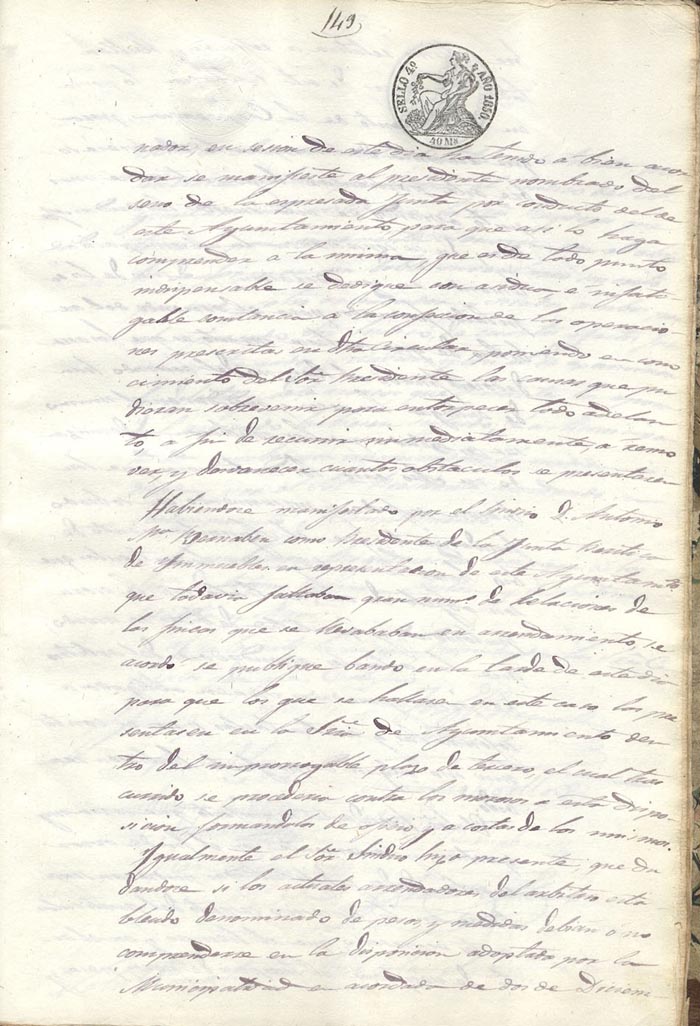 149
SELLO 4º AÑO 1850.
40 Ms
nador, en sesion de este dia ha tenido a bien acor
dar se manifieste al presidente nombrado del
seno de la espresada Junta por conducto del de
este Ayuntamiento para que asi lo haga
comprender a la misma, que es de todo punto
indispensable se dedique con ardor, e infati
gable constancia a la confeccion de las operacio
nes prescritas en dha circular, poniendo en cono
cimiento del Sor. Presidente las causas que pu
dieran sobrevenir para entorpecer todo adelan
to, a fin de recurrir inmediatamente, a remo
ver, y desvanecer cuantos obstaculos se presentasen
Habiendose manifestado por el Sindico D. Antonio
Ma. Bernabeu como Presidente de la Junta
de Ynmuebles en representacion de este Ayuntamto
que todavia faltaban gran numo. de Relaciones de
las fincas que se llevaban en arrendamiento, se
acordó se publique bando en la tarde de este dia
para que los que se hallasen en este caso las pre
sentasen en la Sria. de Ayuntamiento den
tro del improrrogable plazo de tercero, el cual tras
currido se procederia contra los morosos a esta dispo
sicion formandolos de oficio, y a costas de los mismos.
Ygualmente el Sor. Sindico hizo presente, que du
dandose si los actuales arrendadores del arbitrio esta
blecido denominado de pesos, y medidas debian o no
comprenderse en la disposicion adoptada por la
Municipalidad en acordada de dos de Diciem